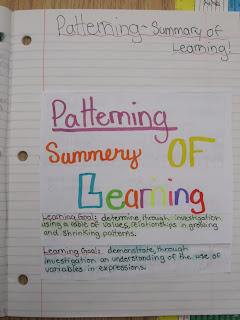 Patterning - Summary of
Learning!
Patterning
Summery OF
Learning
Learning Goal: determine, through investigation
using a table of values, relationships in growing
and shrinking patterns.
Learning Goal: demonstrate, through
investigation an understanding of the use of
variables in expressions.